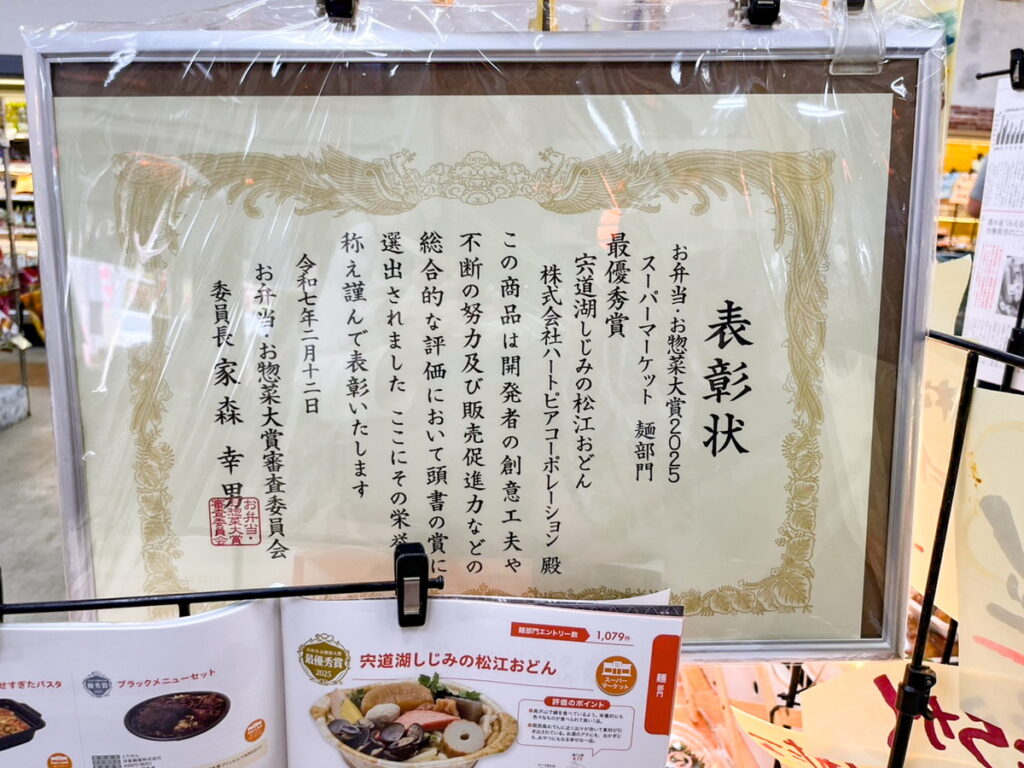 表彰状
お弁当・お惣菜大賞2025
スーパーマーケット 麺部門
最優秀賞
宍道湖しじみの松江おどん
株式会社ハートピアコーポレーション 殿
この商品は開発者の創意工夫や
不断の努力及び販売促進力などの
総合的な評価において頭書の賞に
選出されました ここにその栄誉
称え謹んで表彰いたします
令和七年二月十二日
お弁当・お惣菜大賞審査委員会
委員長 家森 幸男
お弁当・
お惣菜大賞
審査委員会
せすぎたパスタ
優秀賞
ブラックメニューセット
最優秀賞
2025
宍道湖しじみの松江おどん
麺部門エントリー数
1,079件
スーパー
マーケット
麺部門
評価のポイント